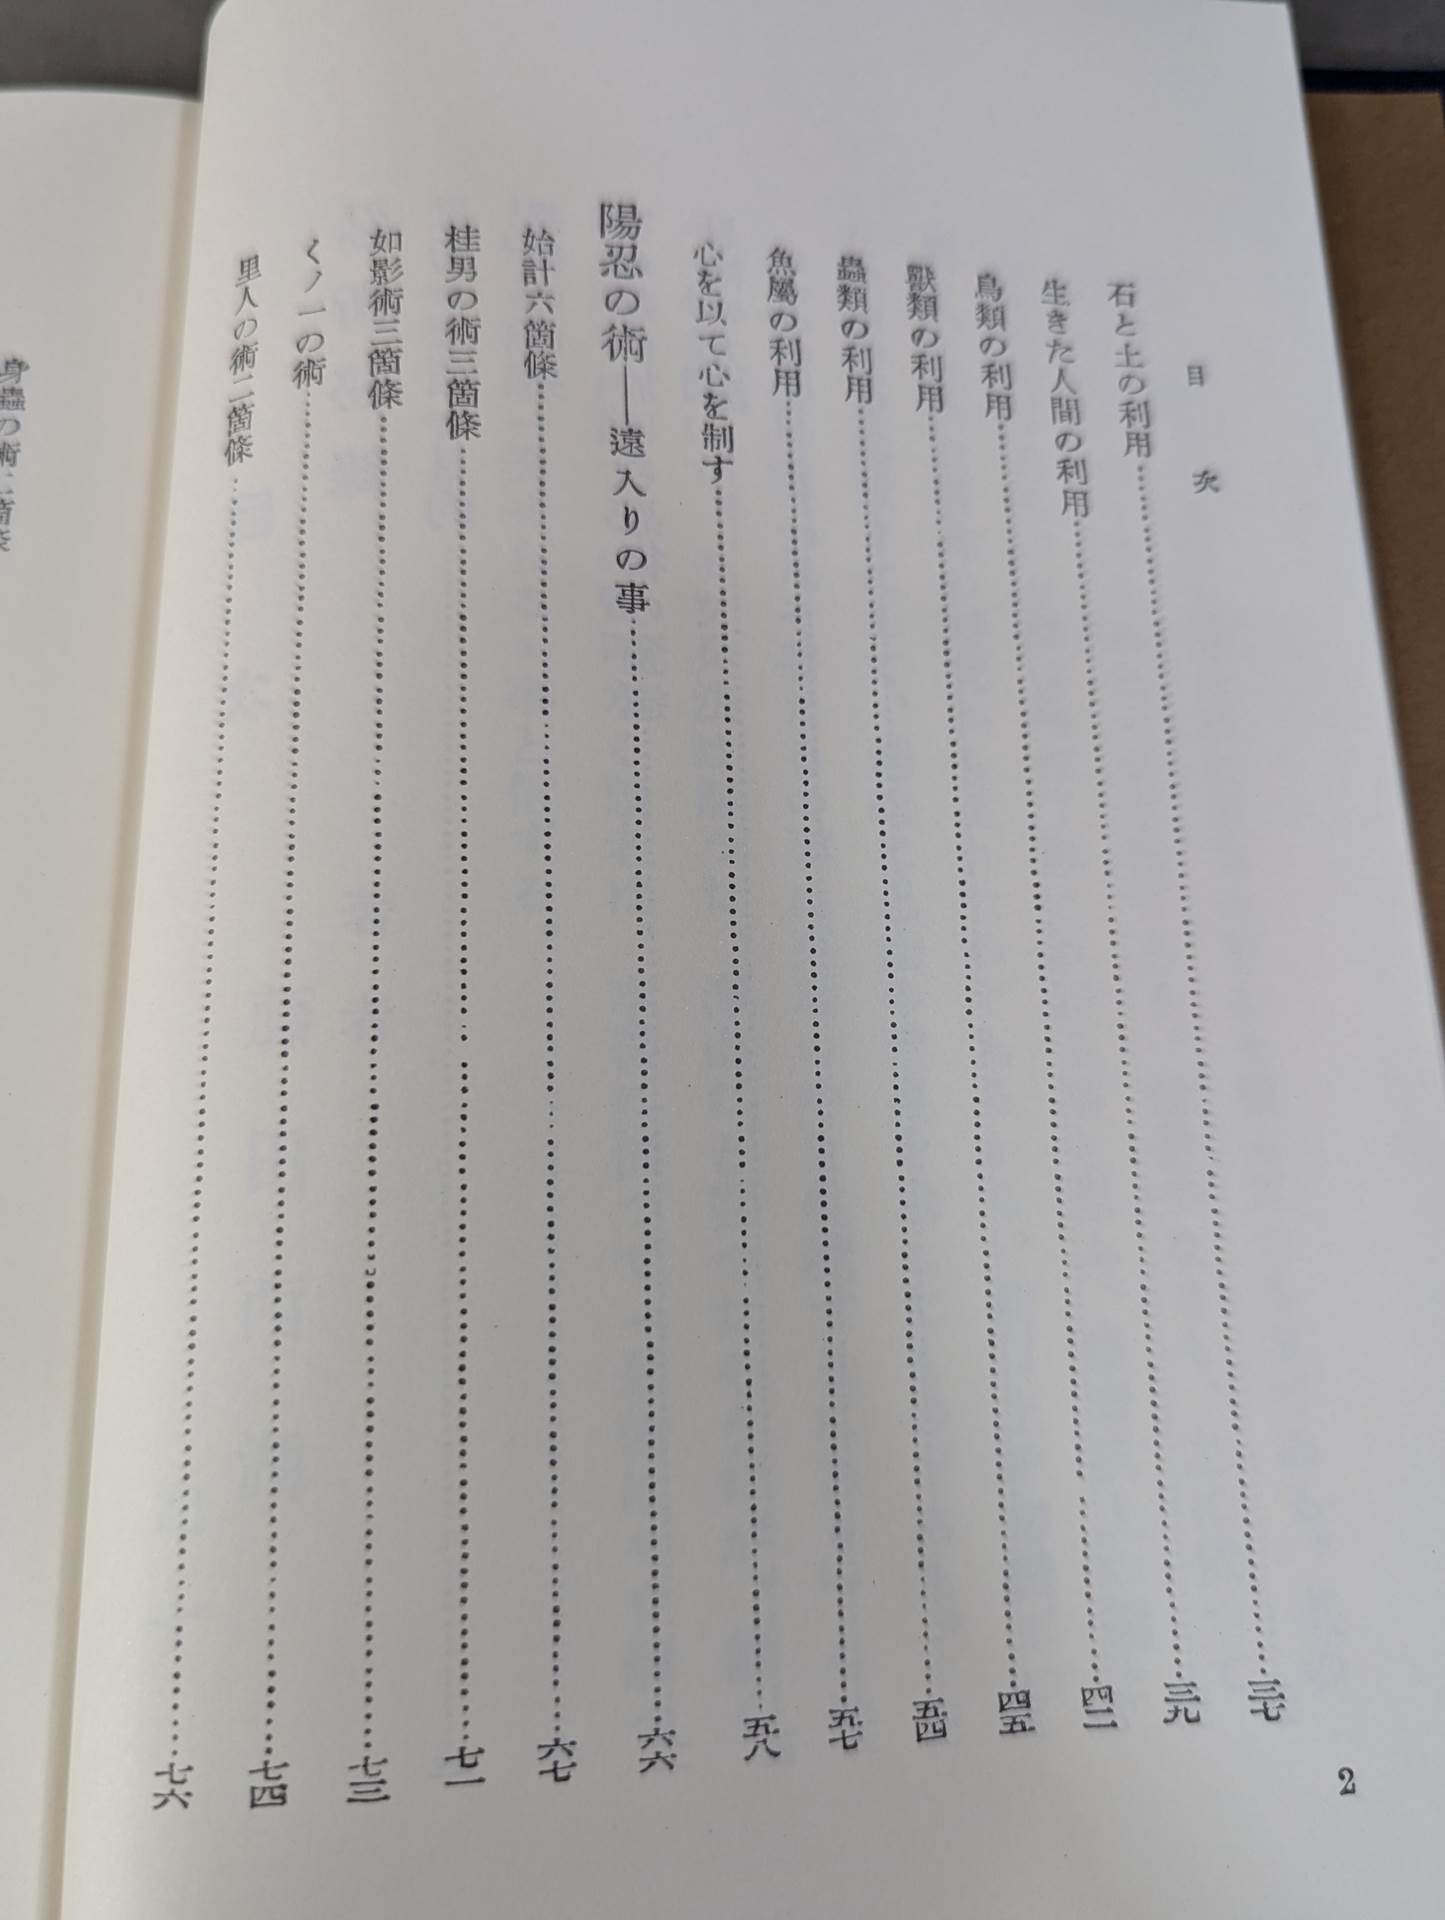 目次
石と土の利用……三七
生きた人間の利用……三九
鳥類の利用……四二
獸類の利用……四五
蟲類の利用……五四
魚屬の利用……五七
心を以て心を制す……五八
陽忍の術――遠入りの事……六六
始計六箇條……六七
桂男の術三箇條……七一
如影術三箇條……七三
くノ一の術……七四
里人の術二箇條……七六
2
身蟲の術二箇條